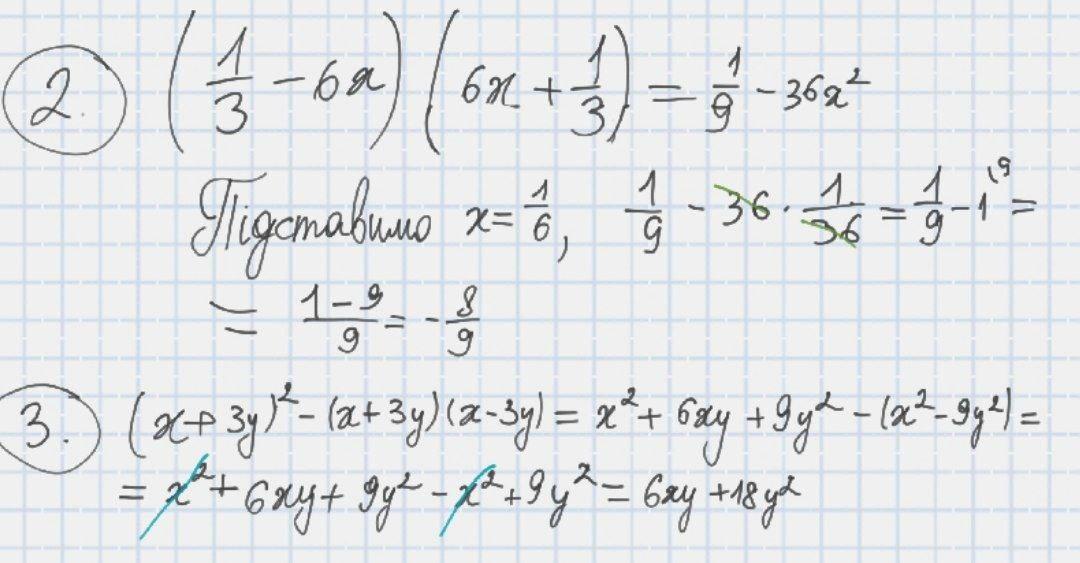 2. (1/3 - 6x)(6x + 1/3) = 1/9 - 36x²
Підставимо x = 1/6, 1/9 - 36 · 1/36 = 1/9 - 1 (9 =
= (1 - 9)/9 = - 8/9
3. (x + 3y)² - (x + 3y)(x - 3y) = x² + 6xy + 9y² - (x² - 9y²) =
= x² + 6xy + 9y² - x² + 9y² = 6xy + 18y²